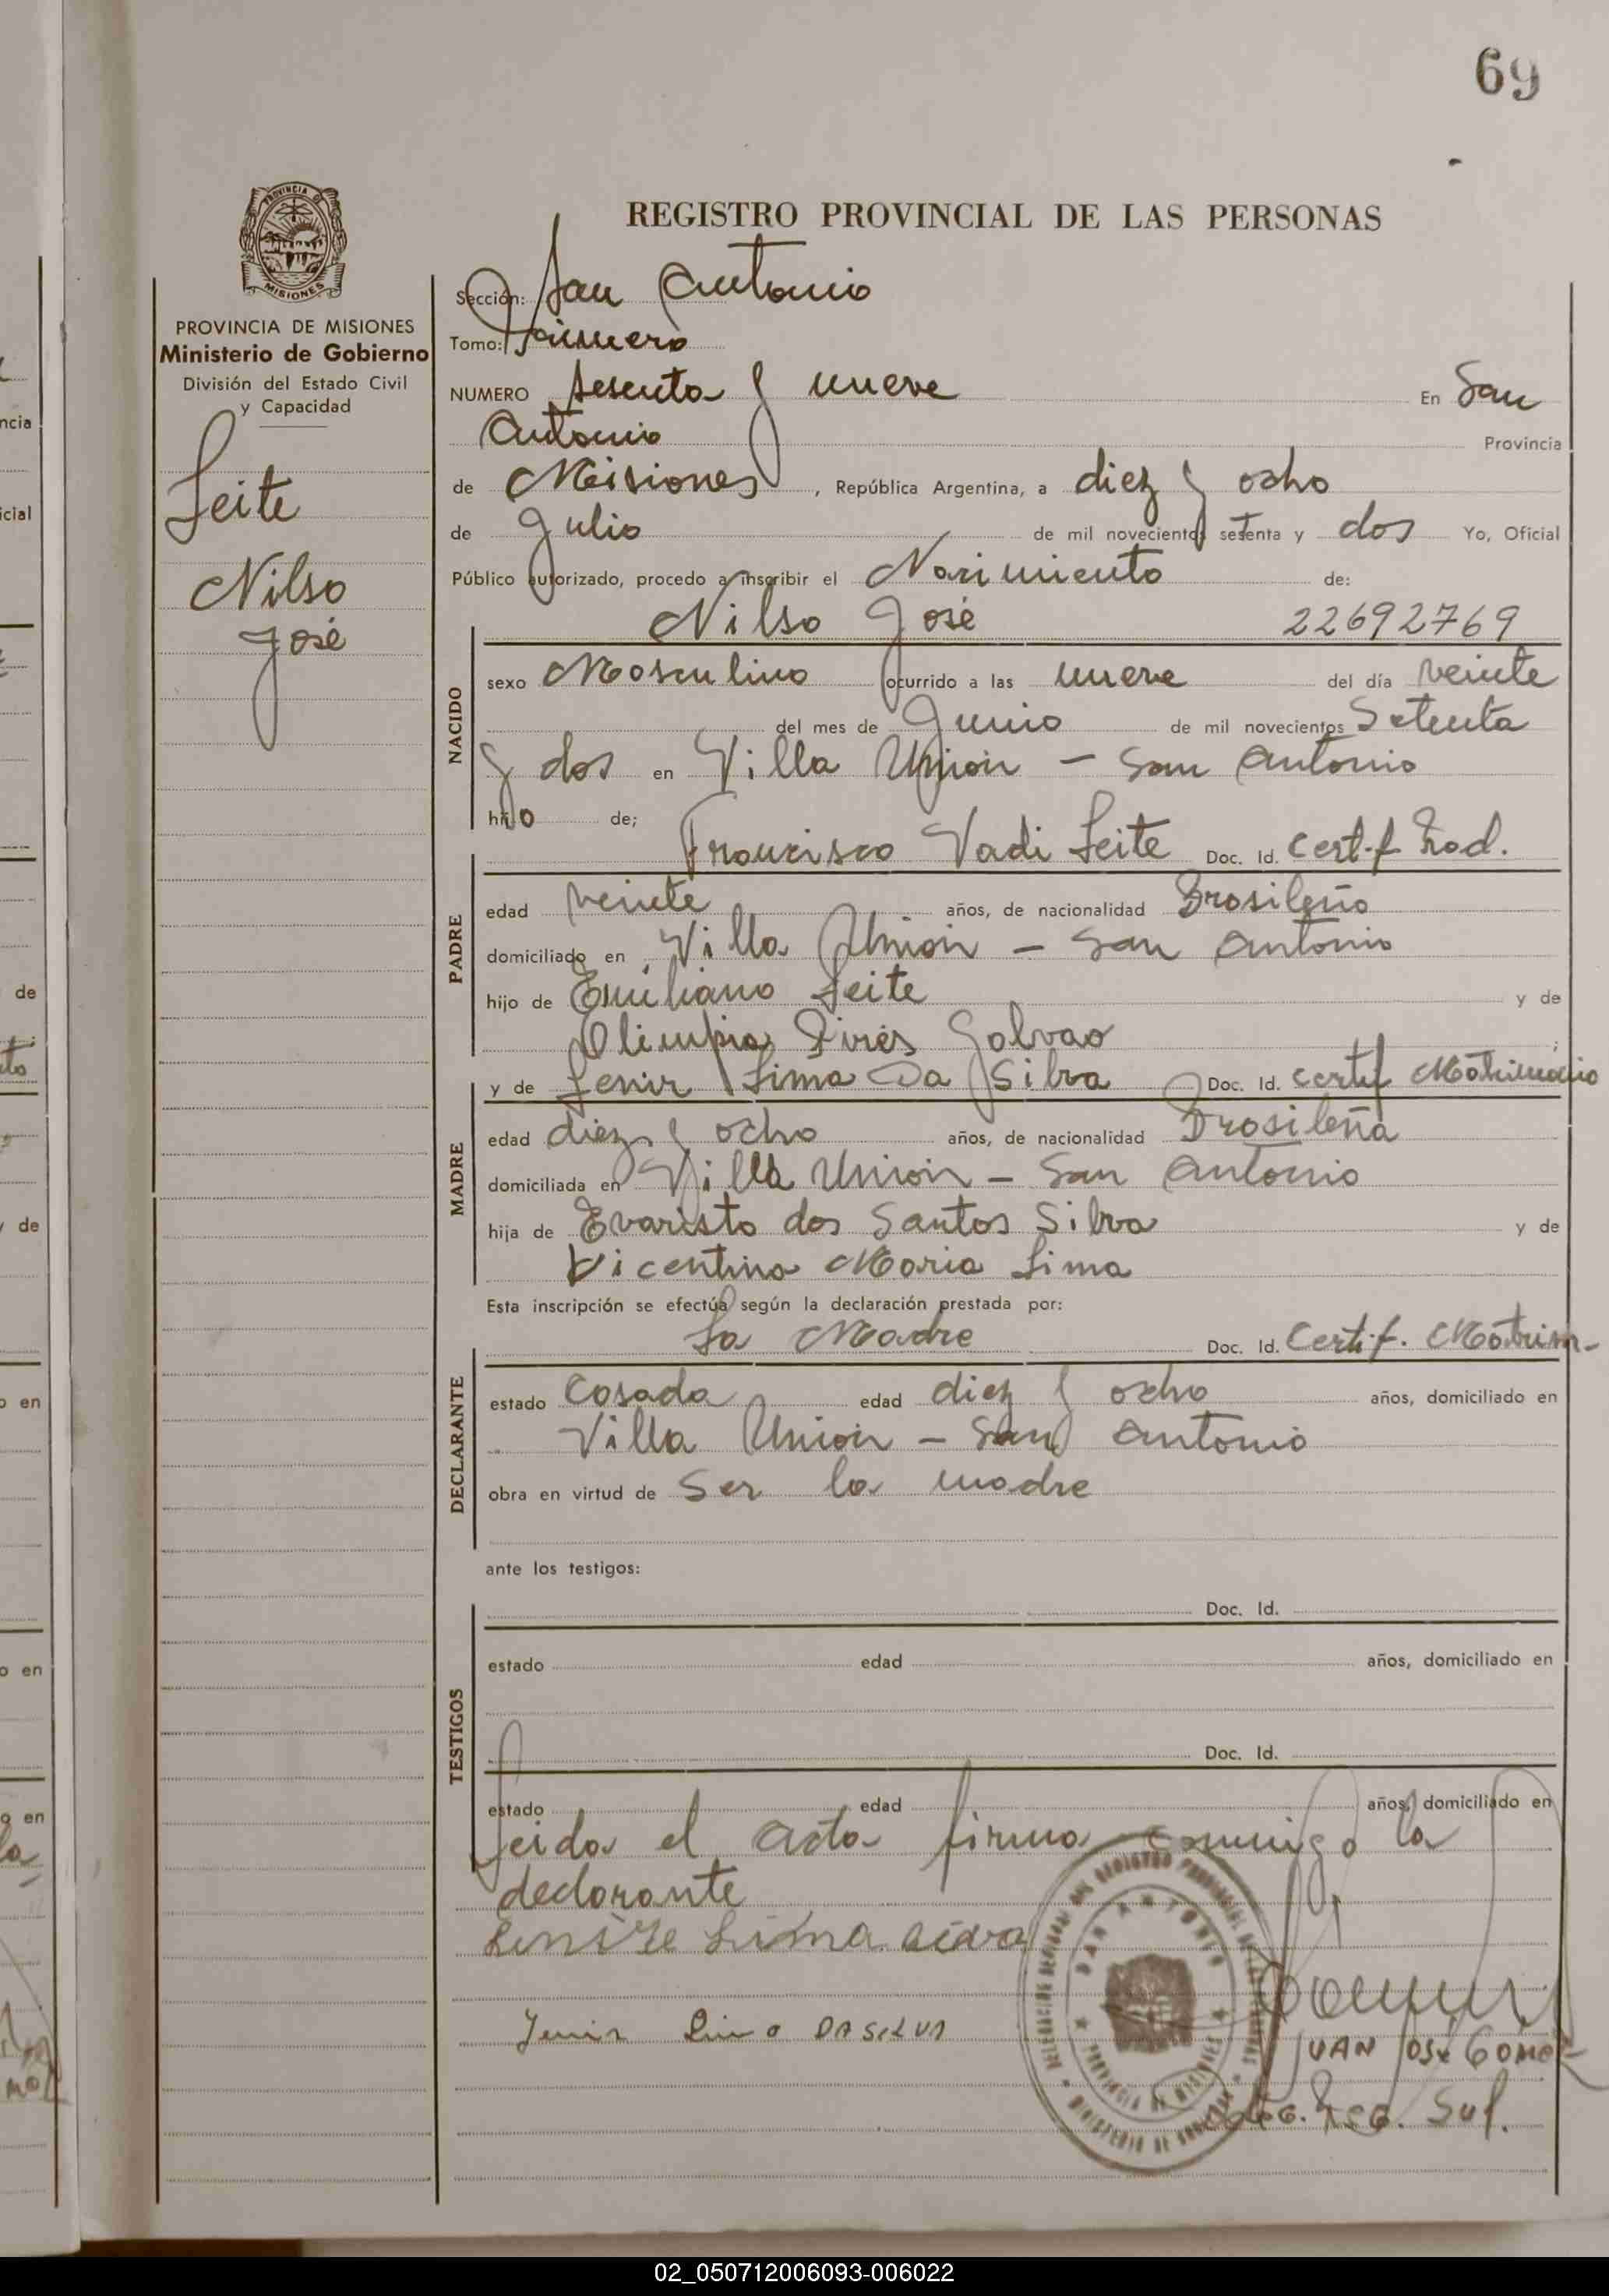 69
REGISTRO PROVINCIAL DE LAS PERSONAS
PROVINCIA DE MISIONES
Ministerio de Gobierno
División del Estado Civil
y Capacidad
Leite
Nilso
José
Sección: San Antonio
Tomo: Primero
NUMERO sesenta y nueve En San
Antonio Provincia
de Misiones, República Argentina, a diez y ocho
de Julio de mil novecientos setenta y dos Yo, Oficial
Público autorizado, procedo a inscribir el Nacimiento de:
Nilso José 22692769
NACIDO
sexo Masculino ocurrido a las nueve del día veinte
del mes de Junio de mil novecientos Setenta
y dos en Villa Unión - San Antonio
hijo de;
Francisco Vadi Leite Doc. Id. Certif Rad.
PADRE
edad veinte años, de nacionalidad Brasileño
domiciliado en Villa Unión - San Antonio
hijo de Emiliano Leite y de
Olimpia Pires Galvao ;
y de Lenir Lima Da Silva Doc. Id. Certif Matrimonio
MADRE
edad diez y ocho años, de nacionalidad Brasileña
domiciliada en Villa Unión - San Antonio
hija de Evaristo dos Santos Silva y de
Vicentina Maria Lima
Esta inscripción se efectúa según la declaración prestada por:
La Madre Doc. Id. Certif. Matrim-
DECLARANTE
estado Casada edad diez y ocho años, domiciliado en
Villa Unión - San Antonio
obra en virtud de Ser la madre
ante los testigos:
Doc. Id.
TESTIGOS
estado edad años, domiciliado en
Doc. Id.
estado edad años, domiciliado en
Leida el acta firma conmigo la
declarante
Lima
Lenir Lima DA SILVA
JUAN JOSÉ GOMEZ
REG. Sup.
02_050712006093-006022